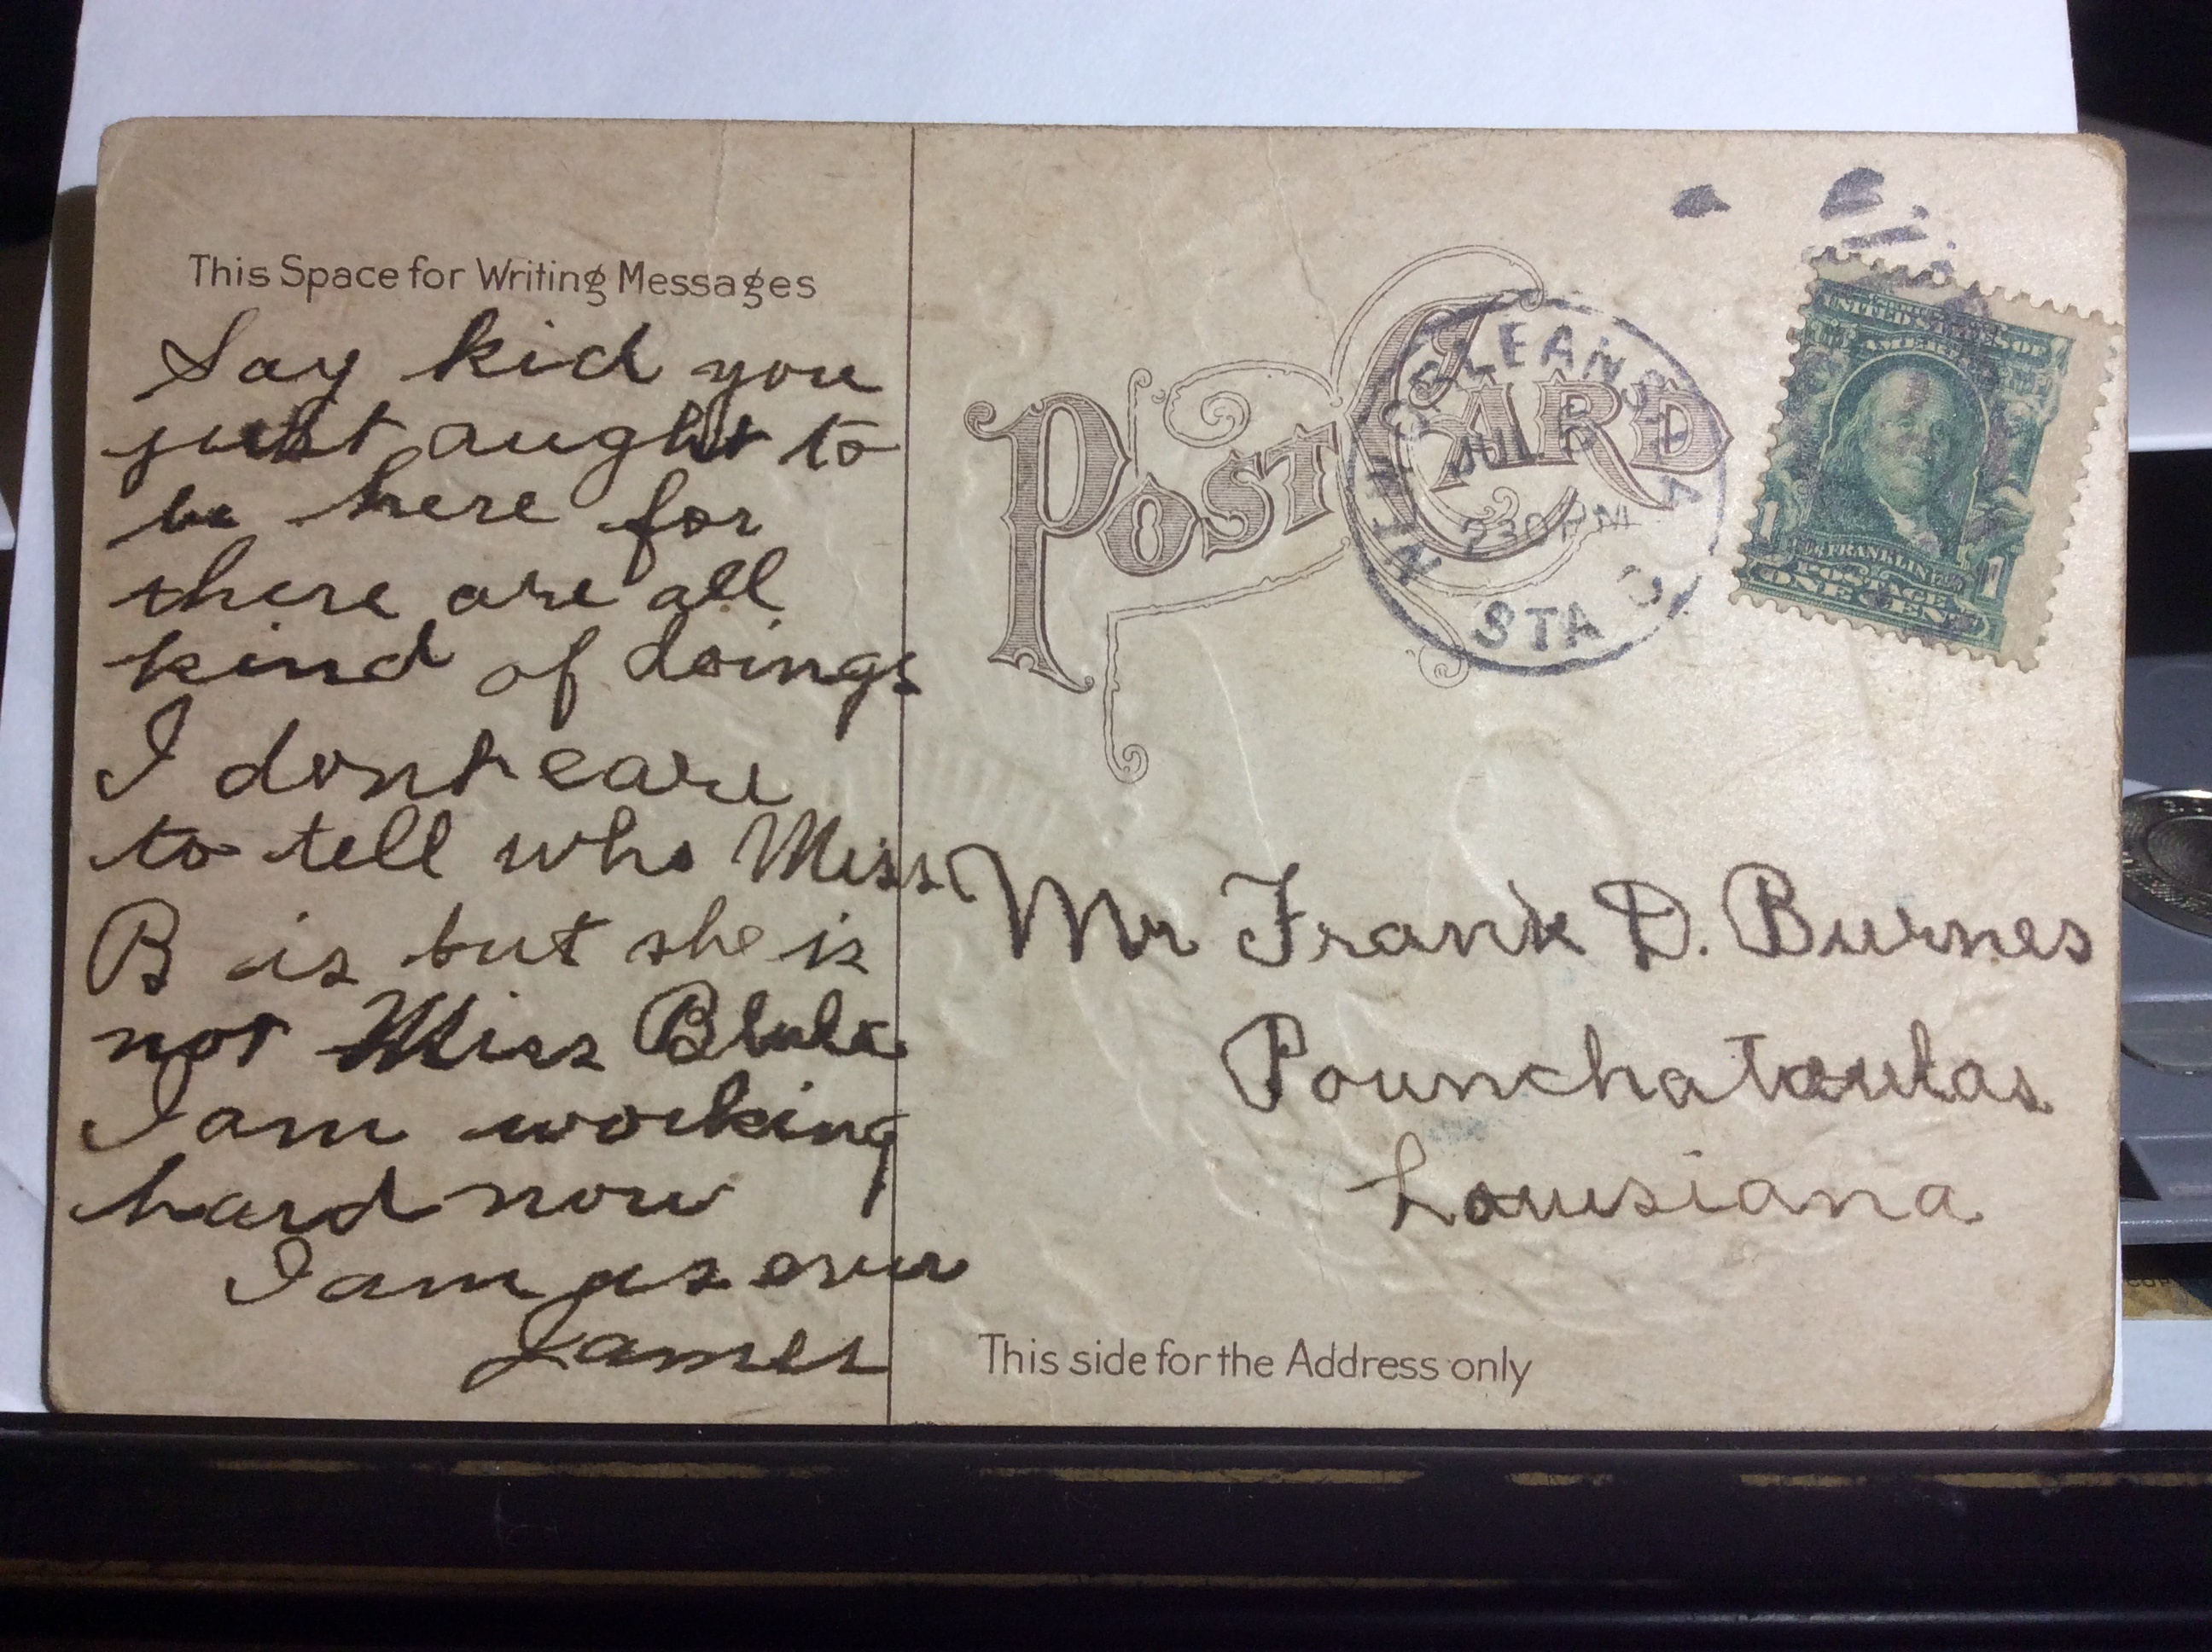 This Space for Writing Messages
Say kid you
just aught to
be here for
there are all
kind of doings
I dont care
to tell who Miss
B is but she is
not Miss
I am working
hard now
I am as ever
James
POST CARD
NEW ORLEANS, LA
JUL
230 PM
STA C
UNITED STATES OF
AMERICA
1 FRANKLIN 1
POSTAGE
ONE CENT
Mr Frank D. Burnes
Pounchatoulas
Louisiana
This side for the Address only